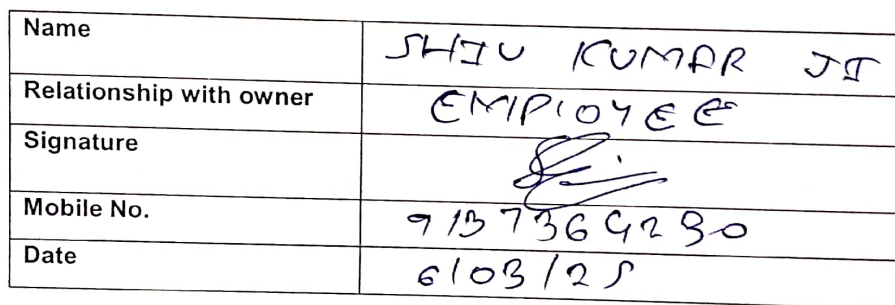 Name SHIV KUMAR JI
Relationship with owner EMPLOYEE
Signature
Mobile No.
Date 6/03/25